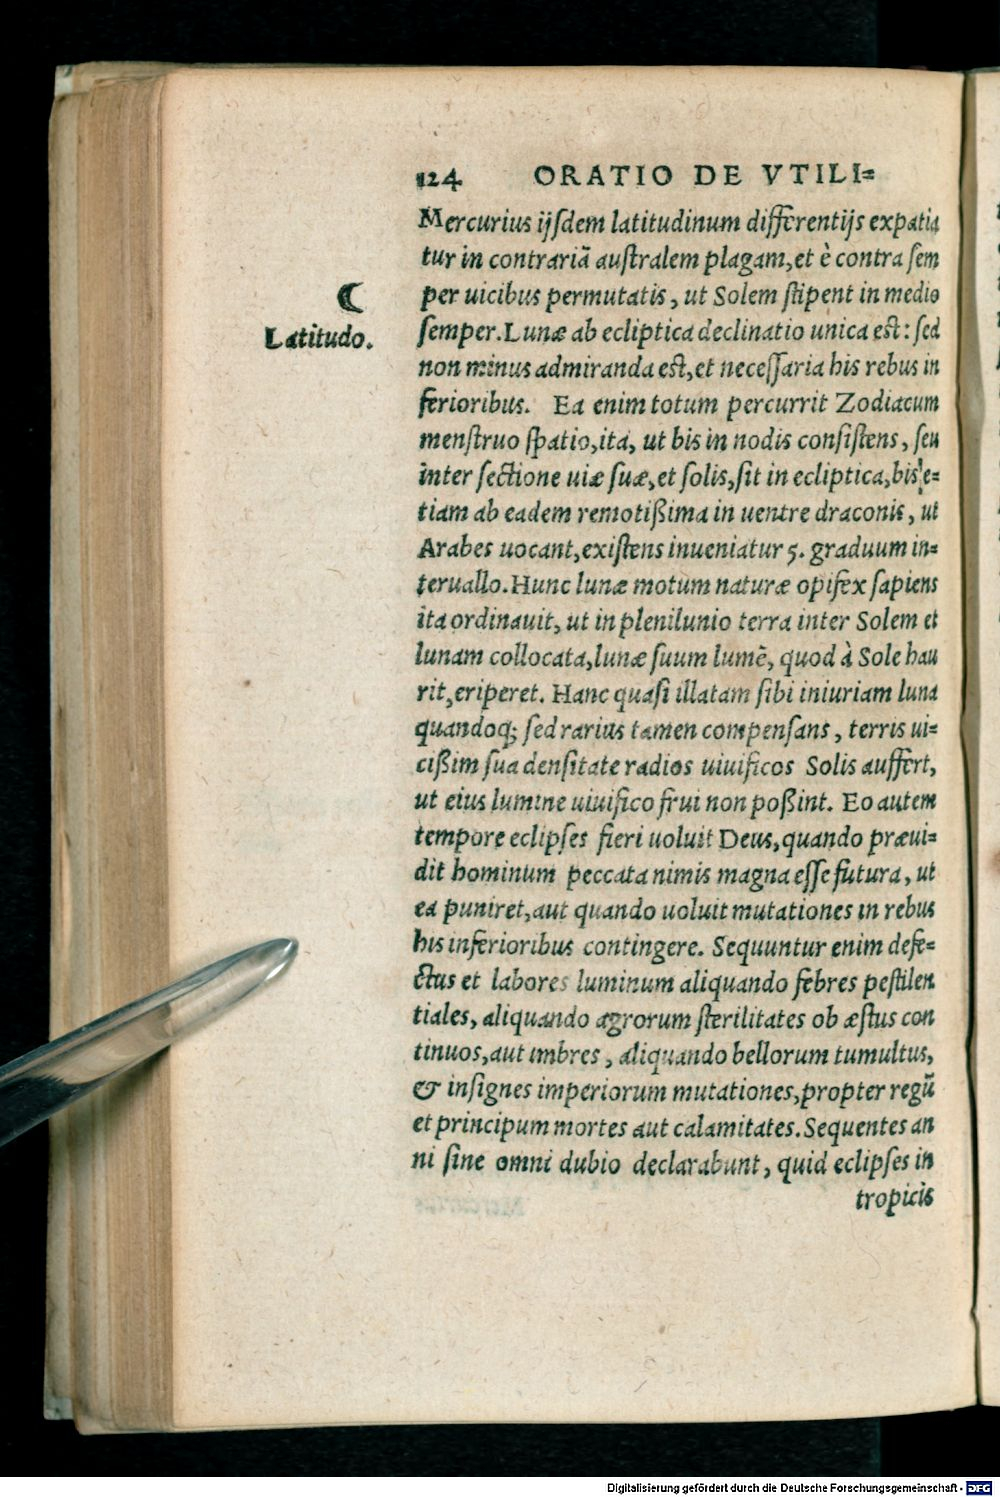 124 ORATIO DE VTILI=
Mercurius ijſdem latitudinum differentijs expatia
tur in contrariã auſtralem plagam, et è contra ſem
per uicibus permutatis, ut Solem ſtipent in medio
☾
Latitudo.
ſemper. Lunæ ab ecliptica declinatio unica eſt: ſed
non minus admiranda eſt, et neceſſaria his rebus in
ferioribus. Ea enim totum percurrit Zodiacum
menſtruo ſpatio, ita, ut bis in nodis conſiſtens, ſeu
inter ſectione uiæ ſuæ, et ſolis, ſit in ecliptica, bis e=
tiam ab eadem remotißima in uentre draconis, ut
Arabes uocant, exiſtens inueniatur 5. graduum in=
teruallo. Hunc lunæ motum naturæ opifex ſapiens
ita ordinauit, ut in plenilunio terra inter Solem et
lunam collocata, lunæ ſuum lumẽ, quod à Sole hau
rit, eriperet. Hanc quaſi illatam ſibi iniuriam luna
quandoq; ſed rarius tamen compenſans, terris ui=
cißim ſua denſitate radios uiuificos Solis auffert,
ut eius lumine uiuifico frui non poßint. Eo autem
tempore eclipſes fieri uoluit Deus, quando præui=
dit hominum peccata nimis magna eſſe futura, ut
ea puniret, aut quando uoluit mutationes in rebus
his inferioribus contingere. Sequuntur enim defe=
ctus et labores luminum aliquando febres peſtilen
tiales, aliquando agrorum ſterilitates ob æſtus con
tinuos, aut imbres, aliquando bellorum tumultus,
& inſignes imperiorum mutationes, propter regũ
et principum mortes aut calamitates. Sequentes an
ni ſine omni dubio declarabunt, quid eclipſes in
tropicis
Digitalisierung gefördert durch die Deutsche Forschungsgemeinschaft - DFG